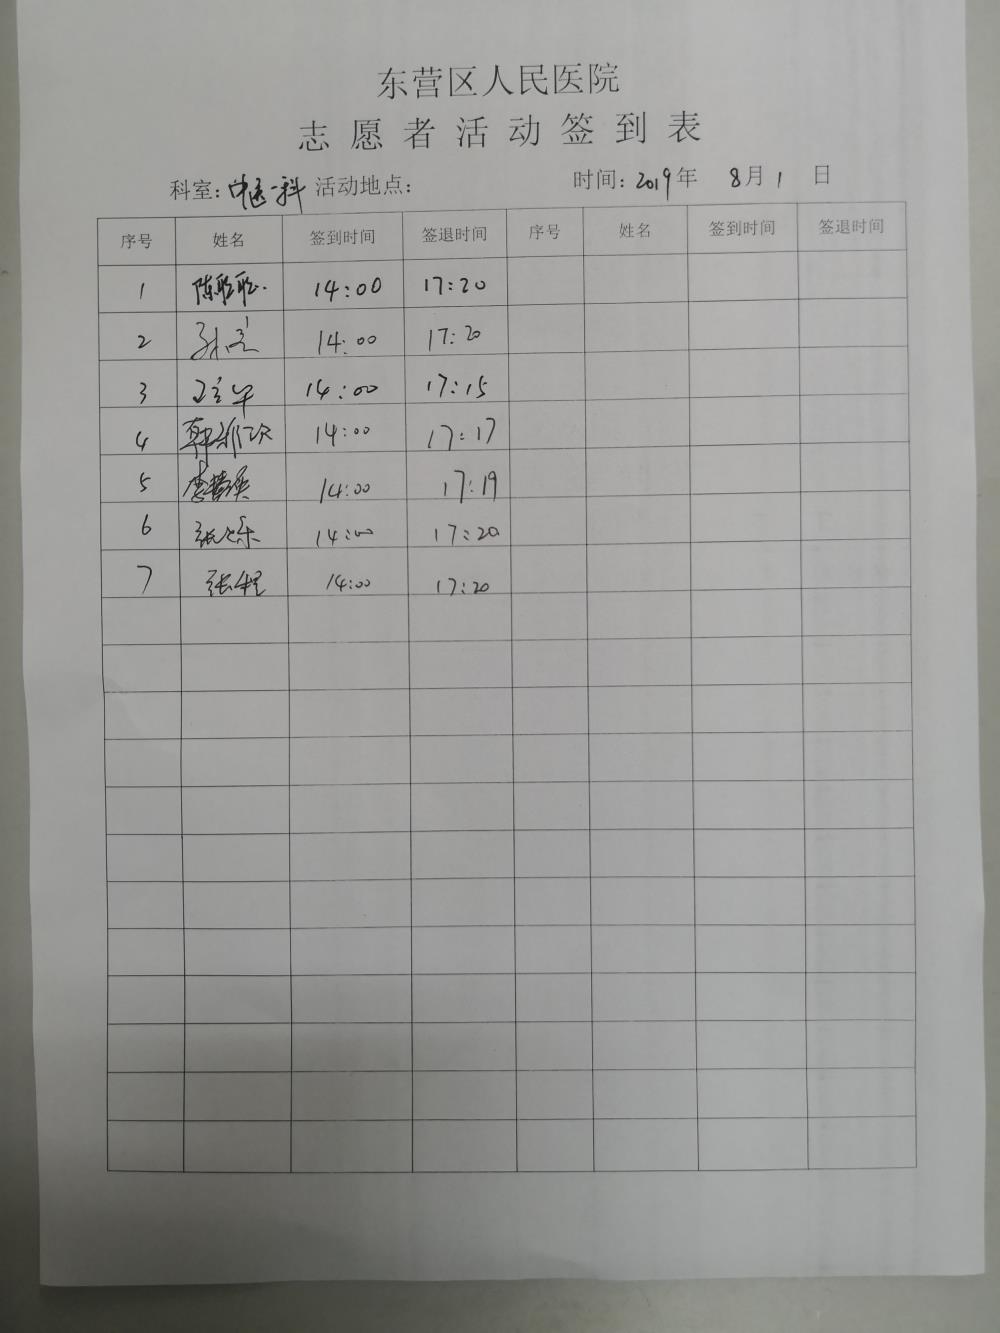 东营区人民医院
志愿者活动签到表
科室：中医一科 活动地点： 时间：2019年 8月1 日
序号 姓名 签到时间 签退时间 序号 姓名 签到时间 签退时间
1 陈聪聪 14:00 17:20
2 14:00 17:20
3 14:00 17:15
4 14:00 17:17
5 14:00 17:19
6 14:00 17:20
7 张程 14:00 17:20